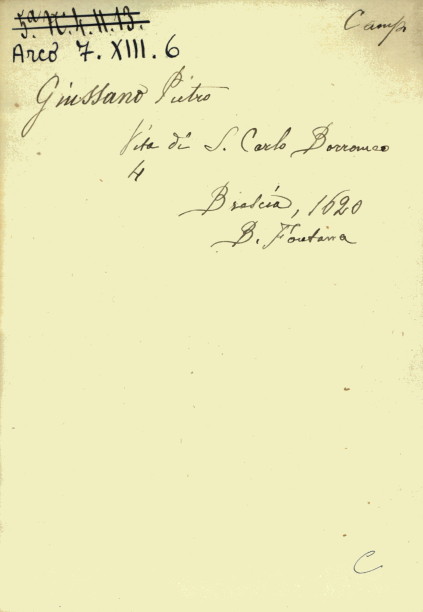 Camp
Arco 7. XIII. 6
Giussano Pietro
Vita di S. Carlo Borromeo
4
Brescia, 1620
B. Fontana
C